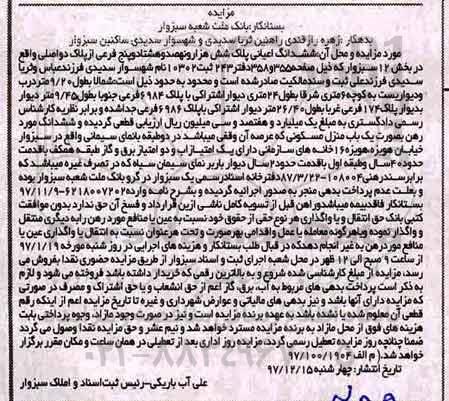 مزایده
بستانکار:بانک ملت شعبه سبزوار
بدهکار :زهره رازقندی راهنین ثریا سدیدی و شهسوار سدیدی ساکنین سبزوار
مورد مزایده و محل آن:ششدانگ اعیانی پلاک شش هزارونهصدوهشتادوپنج فرعی ازپلاک دواصلی واقع
در بخش ۱۲سبزوار که ذیل صفحه۳۵۵و۳۵۸دفتر۲۴۳ ثبت۳۰۲۰۲ نام شهسوار سدیدی فرزندعباس وثریا
سدیدی فرزندعلی ثبت و سندمالکیت صادر شده است و محدود به حدود ذیل است:شمالا بطول ۹/۲۰متردرب
ودیواریست به کوچه۶متری شرقا بطول۲۴متری دیوار اشتراکی با پلاک ۶۹۸۴فرعی جنوبا بطول۹/۴۵متر دیوار
بدیوار پلاک۱۷۴فرعی غربا بطول۲۶/۴۰متر دیوار اشتراکی باپلاک ۶۹۸۶فرعی جداشده و برابر نظریه کارشناس
رسمی دادگستری به مبلغ یک میلیارد و هفتصد و سی میلیون ریال ارزیابی قطعی گردیده و ششدانگ مورد
رهن بصورت یک باب منزل مسکونی که عرصه آن وقفی میباشد در دوطبقه بانمای سیمانی واقع در سبزوار
خیابان هویزه،هویزه۱۶خانه های سازمانی دارای یک امتیازاب و دو امتیاز برق و گاز طبقه همکف باقدمت
حدود۴۰سال وطبقه اول باقدمت حدود۲سال دیوار باربر نمای سیمان سیاه که در تصرف غیره میباشد که
برابرسندرهنی۱۰۸۰۰۴-۸۷/۳/۲۲دفترخانه اسنادرسمی یک سبزوار در گرو بانک ملت شعبه سبزوار بوده
و بعلت عدم پرداخت بدهی منجر به صدور اجرائیه گردیده و بشرح نامه وارده۶۲۱۸۰۰۷۲۰۲-۹۷/۱۱/۹
بستانکار فاقدبیمه میباشدوراهن قبل از تسویه کامل ناشی ازین قرارداد و فسخ آن حق ندارد بدون موافقت
کتبی بانک حق انتقال و یا واگذاری هر نوع حقی از حقوق خود نسبت به عین یا منافع مورد رهن رابه دیگری منتقل
و واگذار نموده وباهرگونه معامله یا عمل واقدامی بهرصورت و تحت هرعنوان نسبت به انتقال یا واگذاری عین یا
منافع موردرهن به غیر انجام دهدکه در قبال طلب بستانکار و هزینه های اجرایی در روز شنبه مورخه ۹۷/۱/۱۹
از ساعت ۹ صبح الی ۱۲ ظهر در محل شعبه اجرای ثبت و اسناد سبزوار از طریق مزایده حضوری نقدا بفروش می
رسد، مزایده از مبلغ کارشناسی شده شروع و به بالاترین رقمی که خریدار داشته باشد فروخته می شود و لازم
به ذکر است پرداخت بدهی های مربوط به آب، برق، گاز اعم از حق انشعاب و یا حق اشتراک و مصرف در صورتی
که مزایده دارای آنها باشد و نیز بدهی های مالیاتی و عوارض شهرداری و غیره تا تاریخ مزایده اعم از اینکه رقم
قطعی آن معلوم شده یا نشده باشد به عهده برنده مزایده است و نیز در صورت وجود مازاد، وجوه پرداختی بابت
هزینه های فوق از محل مازاد به برنده مزایده مسترد خواهد شد و نیم عشر و حق مزایده نقدا وصول می گردد
ضمنا چنانچه روز مزایده تعطیل رسمی گردد، مزایده روز اداری بعد از تعطیلی در همان ساعت و مکان مقرر برگزار
خواهد شد.( م الف ۹۷/۱۰۰/۱۹۰۴
تاریخ انتشار: چهارشنبه ۹۷/۱۲/۱۵
علی آب باریکی-رئیس ثبت اسناد و املاک سبزوار